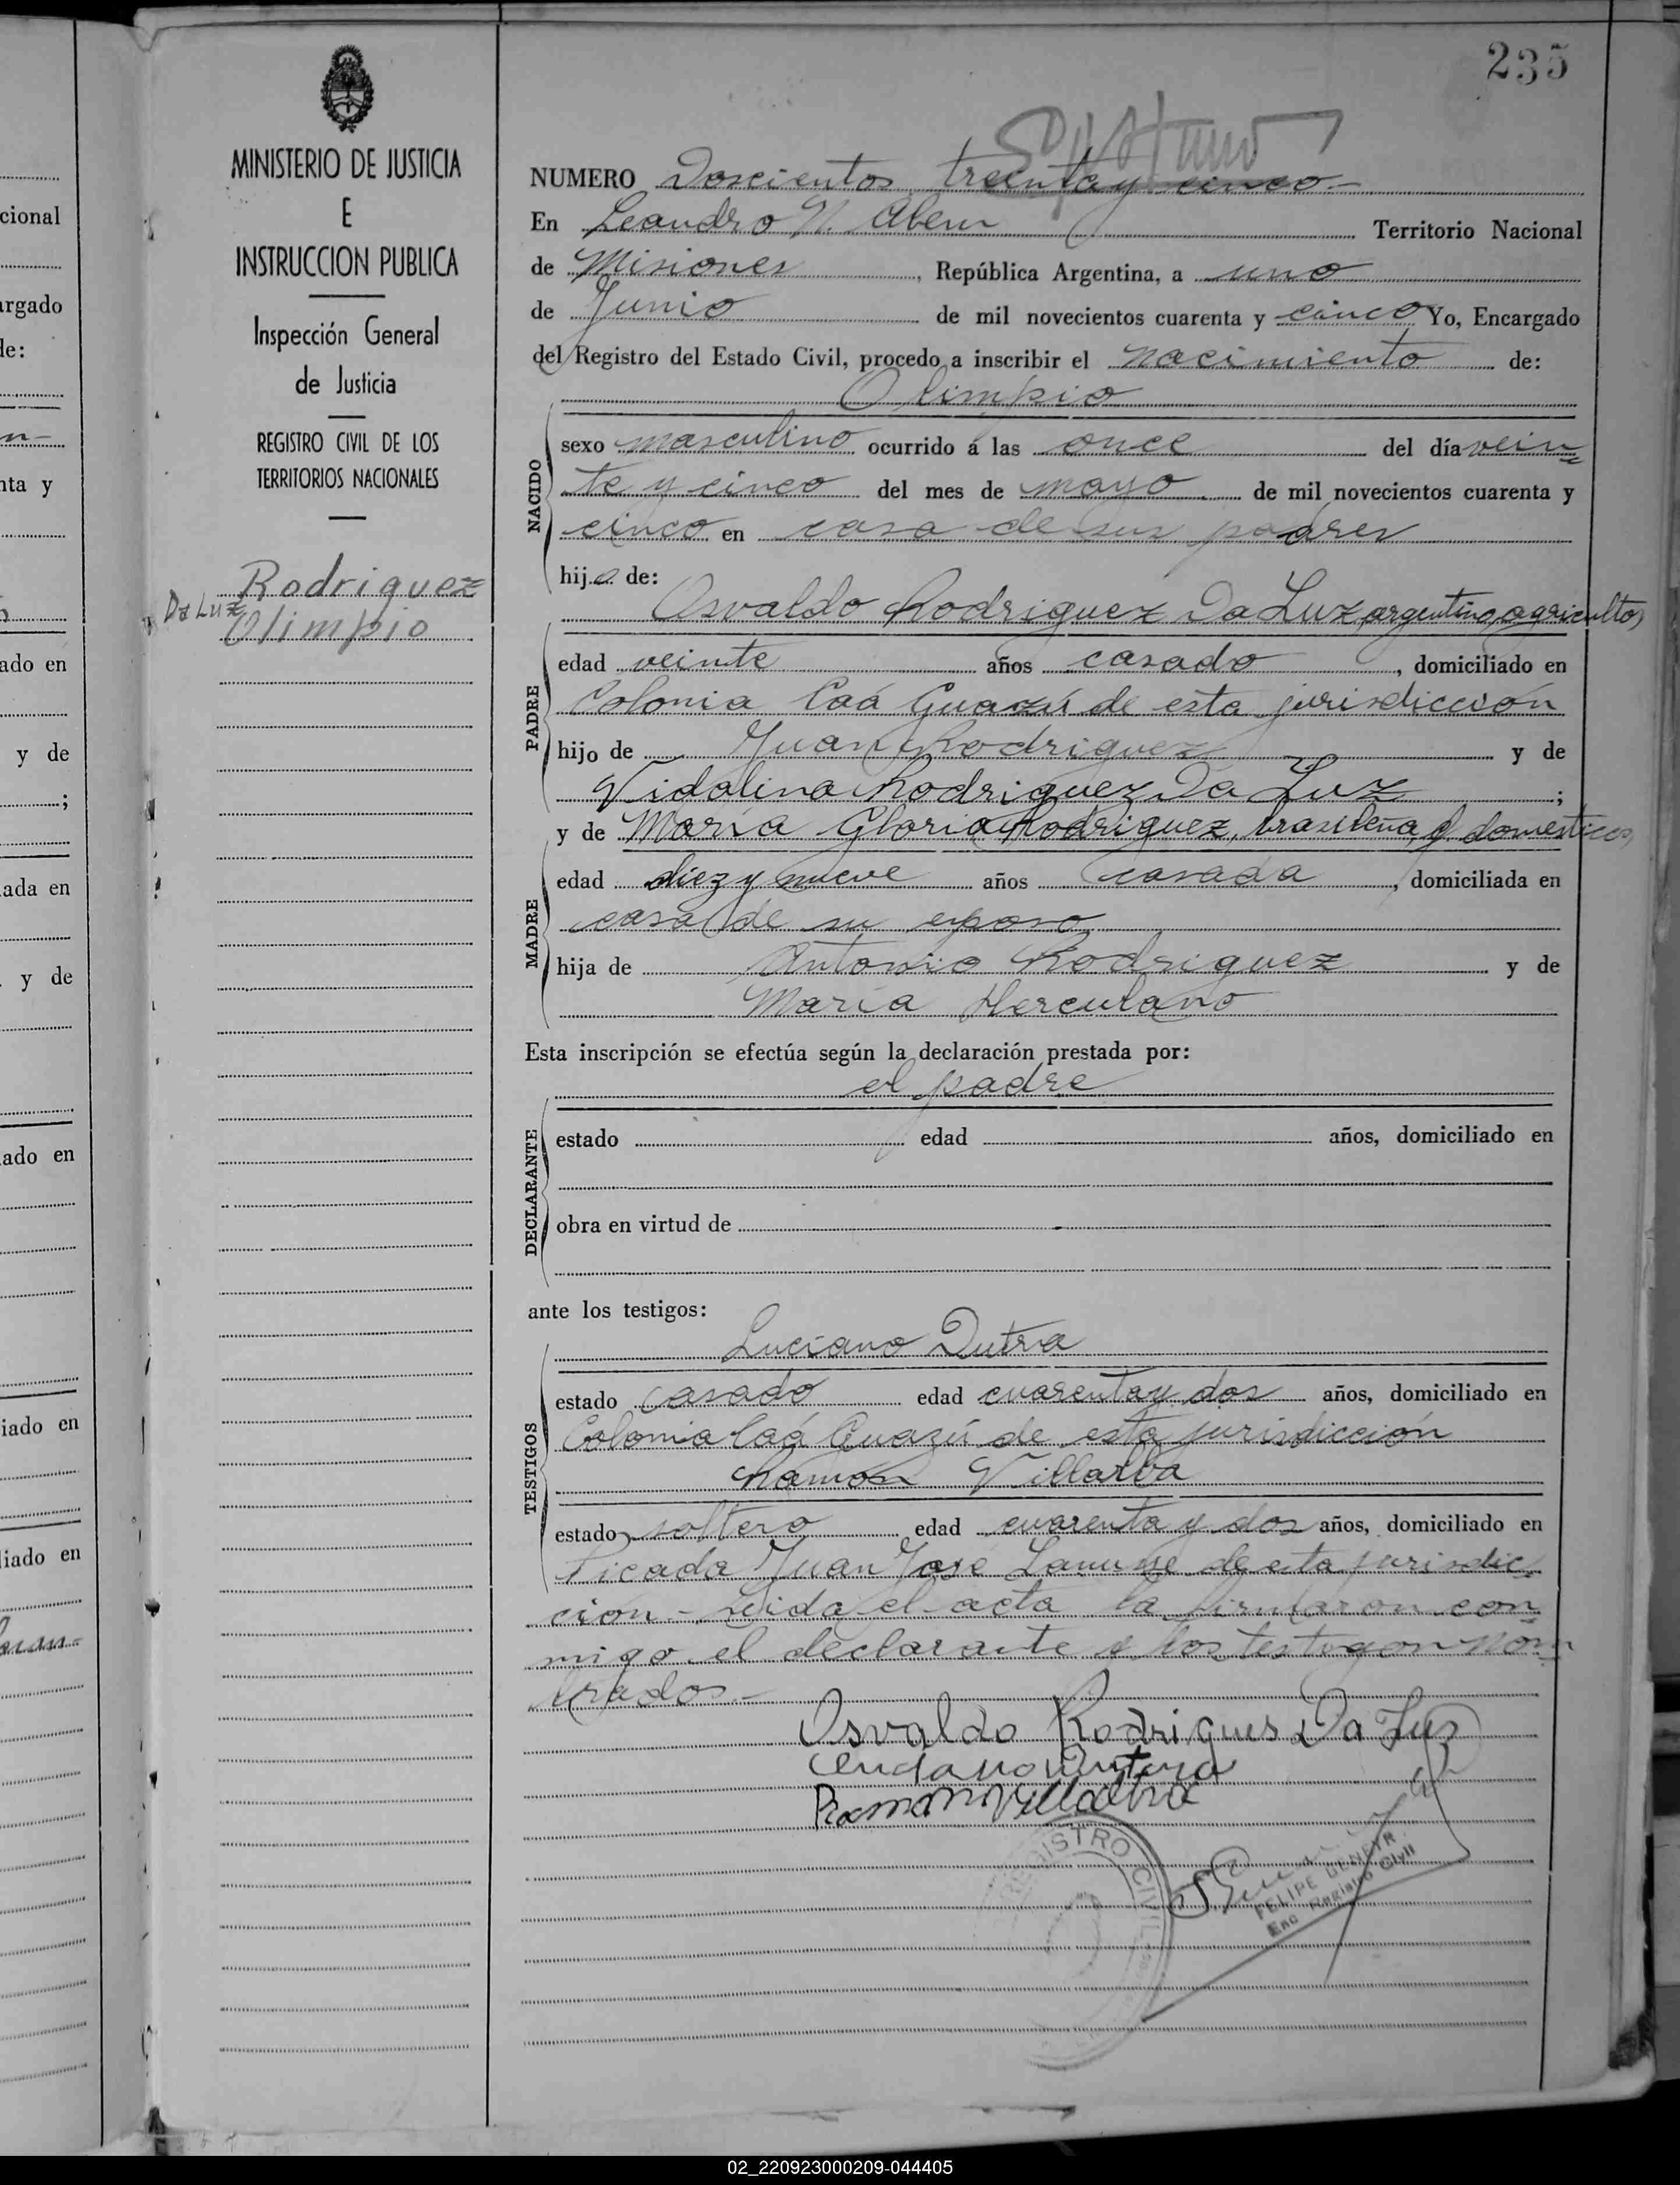 cional
argado
de:
n-
nta y
ado en
y de
;
ada en
y de
ado en
iado en
liado en
MINISTERIO DE JUSTICIA
E
INSTRUCCION PUBLICA
Inspección General
de Justicia
REGISTRO CIVIL DE LOS
TERRITORIOS NACIONALES
Rodriguez
Da Luz
Olimpio
235
NUMERO Doscientos treinta y cinco.-
En Leandro N. Alem Territorio Nacional
de Misiones, República Argentina, a uno
de Junio de mil novecientos cuarenta y cinco Yo, Encargado
del Registro del Estado Civil, procedo a inscribir el nacimiento de:
Olimpio
NACIDO
sexo masculino ocurrido á las once del día vein=
te y cinco del mes de mayo de mil novecientos cuarenta y
cinco en casa de sus padres
hijo de:
Osvaldo Rodriguez Da Luz, argentino, agricultor,
PADRE
edad veinte años casado, domiciliado en
Colonia Caá Guazú de esta jurisdicción
hijo de Juan Rodriguez y de
Vidalina Rodriguez Da Luz;
y de María Gloria Rodriguez, brasileña, q. domesticos,
MADRE
edad diez y nueve años casada, domiciliada en
casa de su esposo
hija de Antonio Rodriguez y de
María Herculano
Esta inscripción se efectúa según la declaración prestada por:
el padre
DECLARANTE
estado edad años, domiciliado en
obra en virtud de
ante los testigos:
Luciano Dutra
TESTIGOS
estado casado edad cuarenta y dos años, domiciliado en
Colonia Caá Guazú de esta jurisdicción
Ramón Villalba
estado soltero edad cuarenta y dos años, domiciliado en
Picada Juan José Lanusse de esta jurisdic=
ción - Leida el acta la firmaron con=
migo el declarante y los testigos nom=
brados.-
Osvaldo Rodrigues Da Luz
Ramon Villalba
REGISTRO CIVIL
FELIPE
Enc Registro Civil
02_220923000209-044405